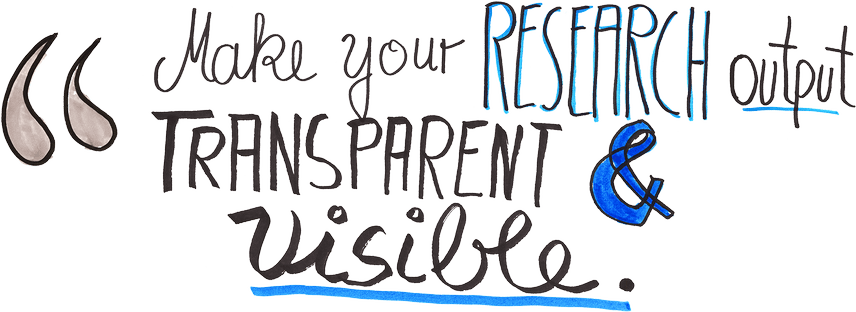 “ Make your RESEARCH output
TRANSPARENT &
visible.